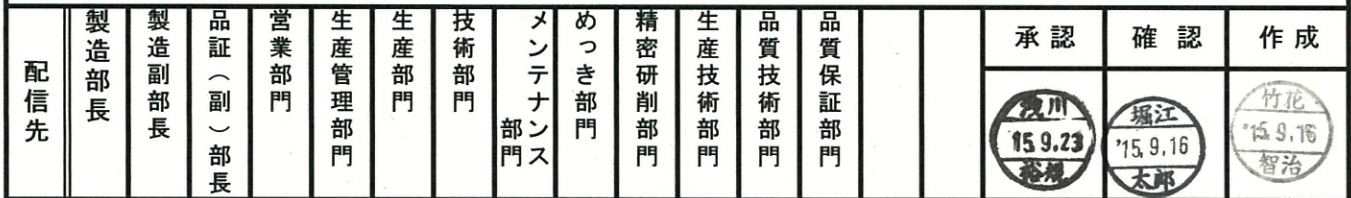 配信先
製造部長
製造副部長
品証（副）部長
営業部門
生産管理部門
生産部門
技術部門
メンテナンス
部門
めっき部門
精密研削部門
生産技術部門
品質技術部門
品質保証部門
承認
確認
作成
浅川
'15.9.23
裕規
堀江
'15.9.16
太郎
竹花
'15.9.16
智治